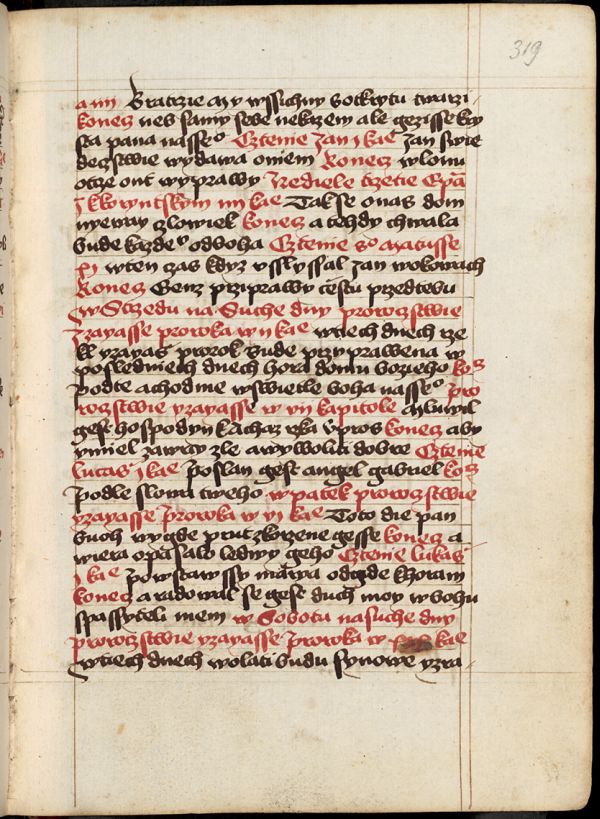 319
a iiij Bratrzie my wssichny sodkrytu twarzi
konecz neb samy sebe nekazem ale gezisse kry
sta pana nasseo Cztenie Jan j kae Jan swie
deczstwie wydawa oniem Konecz wlonu
otcze ont wyprawy Nediele trzetie
j kkoryntskym iiij kae Takse onas dom
nyeway czlowiek konecz a tehdy chwala
bude kazdeo odboha Cztenie so Matusse
xj wten czas kdyz usslyssal Jan wokowach
Konecz Genz prziprawy cestu przedtebu
w Strzedu na Suche dny proroczstwie
yzayasse proroka w ij kae wtiech dnech rze
kl yzayas prorok bude przyprawena w
poslednich dnech hora domu bozieho
podte achodme wswietle boha nasseo pro
roczstwie yzayasse w vij kapitole Mluwil
gest hospodyn kAchaz rzka Upros konecz aby
vmiel zawrcy zle a wywoliti dobre Cztenie
Lucas j kae Poslan gest angel gabriel
podle slowa tweho w patek proroczstwie
yzayasse Proroka w xj kae Toto die pan
buoh wygde prut zkorzene gesse konecz a
wiera opasalo ledwy geho Cztenie lukas
j kae Powstawssy maria odgde khoram
konecz a radowal se gest duch moy wbohu
spassyteli mem w Sobotu nasuche dny
proroczstwie yzayasse Proroka w kae
wtiech dnech wolati budu synowe yzra-